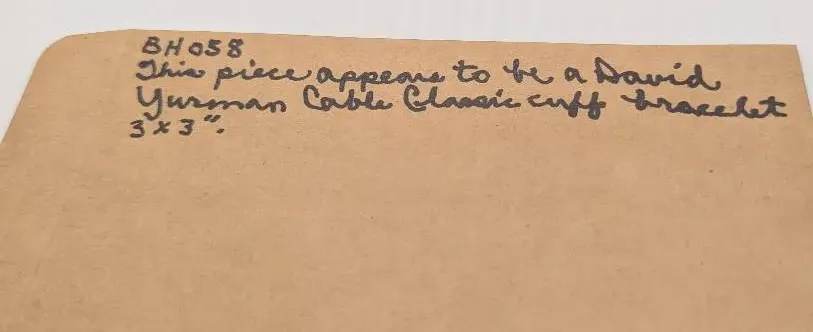 BH058
This piece appears to be a David
Yurman Cable Classic cuff bracelet
3 x 3".